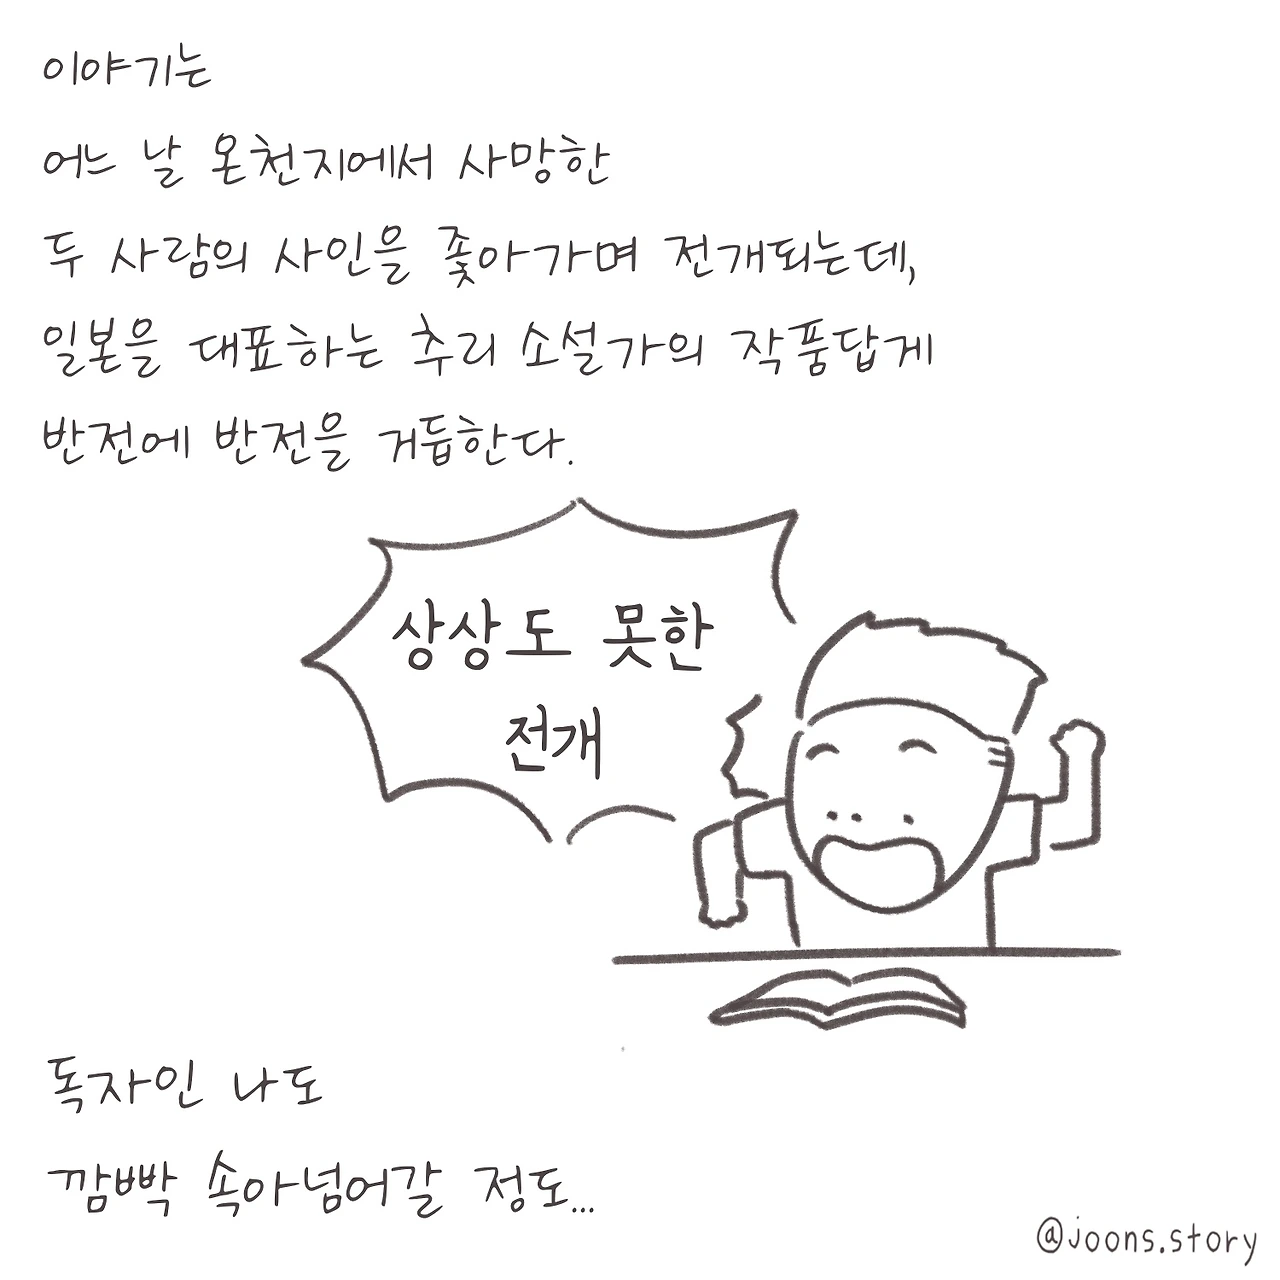 이야기는
어느 날 온천지에서 사망한
두 사람의 사인을 좇아가며 전개되는데,
일본을 대표하는 추리 소설가의 작품답게
반전에 반전을 거듭한다.
상상도 못한
전개
독자인 나도
깜빡 속아넘어갈 정도...
@joons.story